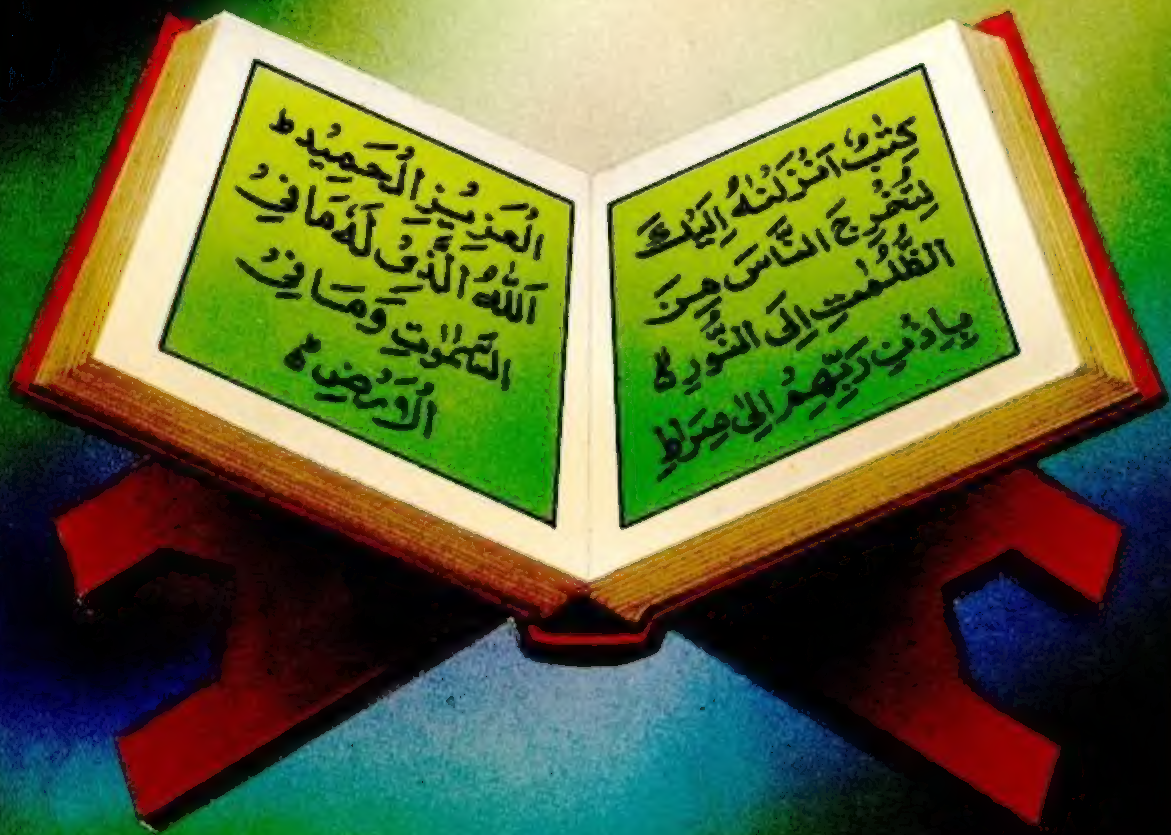 كِتٰبٌ اَنْزَلْنٰهُ اِلَيْكَ
لِتُخْرِجَ النَّاسَ مِنَ
الظُّلُمٰتِ اِلَى النُّوْرِ ە
بِاِذْنِ رَبِّهِمْ اِلٰى صِرَاطِ
الْعَزِيْزِ الْحَمِيْدِ ط
اَللّٰهُ الَّذِيْ لَهٗ مَا فِيْ
السَّمٰوٰتِ وَمَا فِيْ
الْاَرْضِ ە